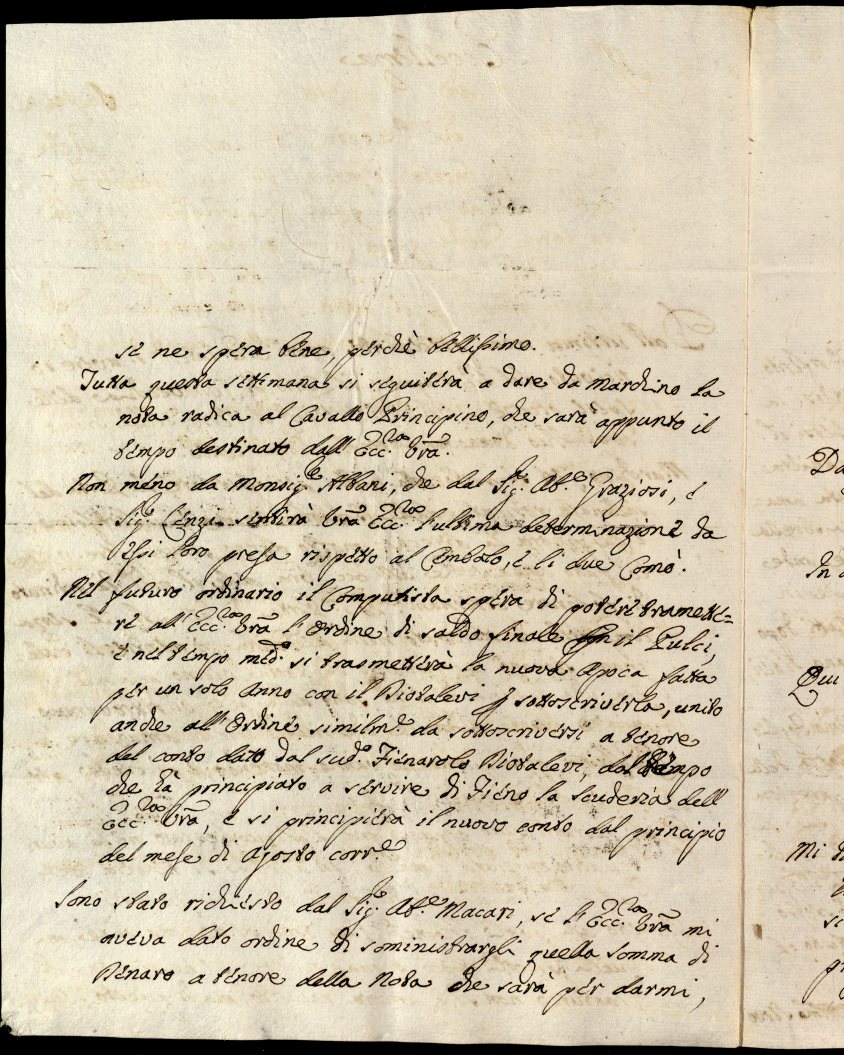 se ne spera bene, perchè bellissimo.
Tutta questa settimana si seguiterà a dare da Marchino la
nota radica al Cavallo Principino, che sarà appunto il
tempo destinato dall'Ecc:za Vrã.
Non meno da Monsig.e Albani, che dal Sig.e Ab.e Graziosi, e
Sig.e Cenza sentirà Vrã Ecc:za l'ultima determinazione da
essi loro presa rispetto al Cimbalo, e li due Comò.
Nel futuro ordinario il Computista spera di potere tramette=
re all'Ecc:za Vrã l'Ordine di saldo finale con il Pulci,
e nel tempo med.o si trasmetterà la nuova Apoca fatta
per un solo Anno con il Diotalevi p sottoscriverla, unito
anche all'Ordine similm.e da sottoscriversi a tenore
del conto dato dal sud.o Fienarolo Diotalevi, dal tempo
che hà principiato a servire di Fieno la scuderia dell'
Ecc:za Vrã, e si principierà il nuovo conto dal principio
del mese di Agosto corr.e
Sono stato richiesto dal Sig.e Ab.e Macari, se l'Ecc:za Vrã mi
aveva dato ordine di somministrargli quella somma di
Denaro a tenore della Nota che sarà per darmi,
Da
In
Qui
Mi